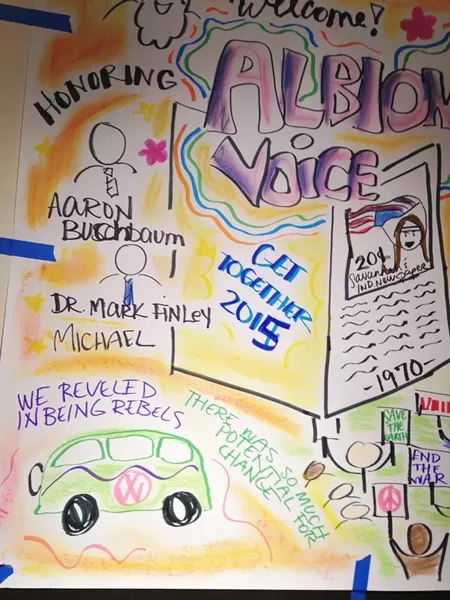 Welcome!
ALBION
VOICE
HONORING
AARON
Buschbaum
DR. MARK FINLEY
MICHAEL
GET
TOGETHER
2015
20¢
Savannah's
IND. NEWSPAPER
-1970-
WE REVELED
IN BEING REBELS
THERE WAS SO MUCH
POTENTIAL FOR
CHANGE
SAVE
THE
EARTH
END
THE
WAR